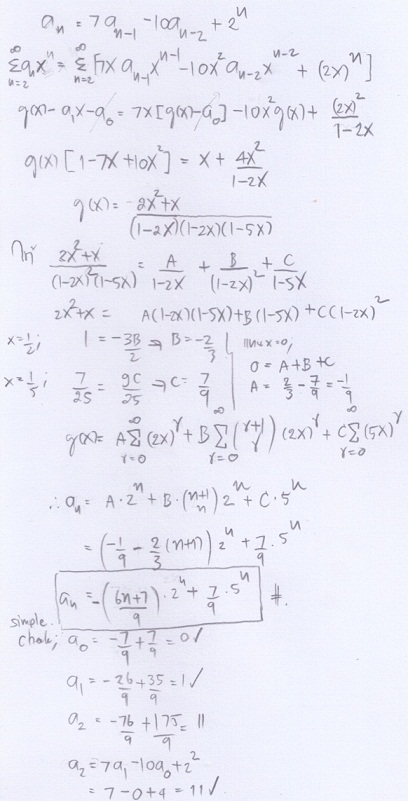 aₙ = 7aₙ₋₁ - 10aₙ₋₂ + 2ⁿ
∞Σn=2 aₙxⁿ = ∞Σn=2 [7x aₙ₋₁xⁿ⁻¹ - 10x²aₙ₋₂xⁿ⁻² + (2x)ⁿ]
g(x) - a₁x - a₀ = 7x[g(x) - a₀] - 10x²g(x) + (2x)²/(1-2x)
g(x)[1-7x+10x²] = x + 4x²/(1-2x)
g(x) = (2x²+x)/((1-2x)(1-2x)(1-5x))
จาก (2x²+x)/((1-2x)²(1-5x)) = A/(1-2x) + B/(1-2x)² + C/(1-5x)
2x²+x = A(1-2x)(1-5x) + B(1-5x) + C(1-2x)²
x=1/2; 1 = -3B/2 ⇒ B = -2/3 | แทน x=0;
x=1/5; 7/25 = 9C/25 ⇒ C = 7/9 | 0 = A+B+C
A = 2/3 - 7/9 = -1/9
g(x) = A ∞Σr=0 (2x)ʳ + B ∞Σr=0 (r+1 r)(2x)ʳ + C ∞Σr=0 (5x)ʳ
∴ aₙ = A·2ⁿ + B·(n+1 n)2ⁿ + C·5ⁿ
= (-1/9 - 2/3(n+1))2ⁿ + 7/9·5ⁿ
aₙ = -((6n+7)/9)·2ⁿ + 7/9·5ⁿ #.
simple
check; a₀ = -7/9 + 7/9 = 0 ✓
a₁ = -26/9 + 35/9 = 1 ✓
a₂ = -76/9 + 175/9 = 11
a₂ = 7a₁ - 10a₀ + 2²
= 7 - 0 + 4 = 11 ✓